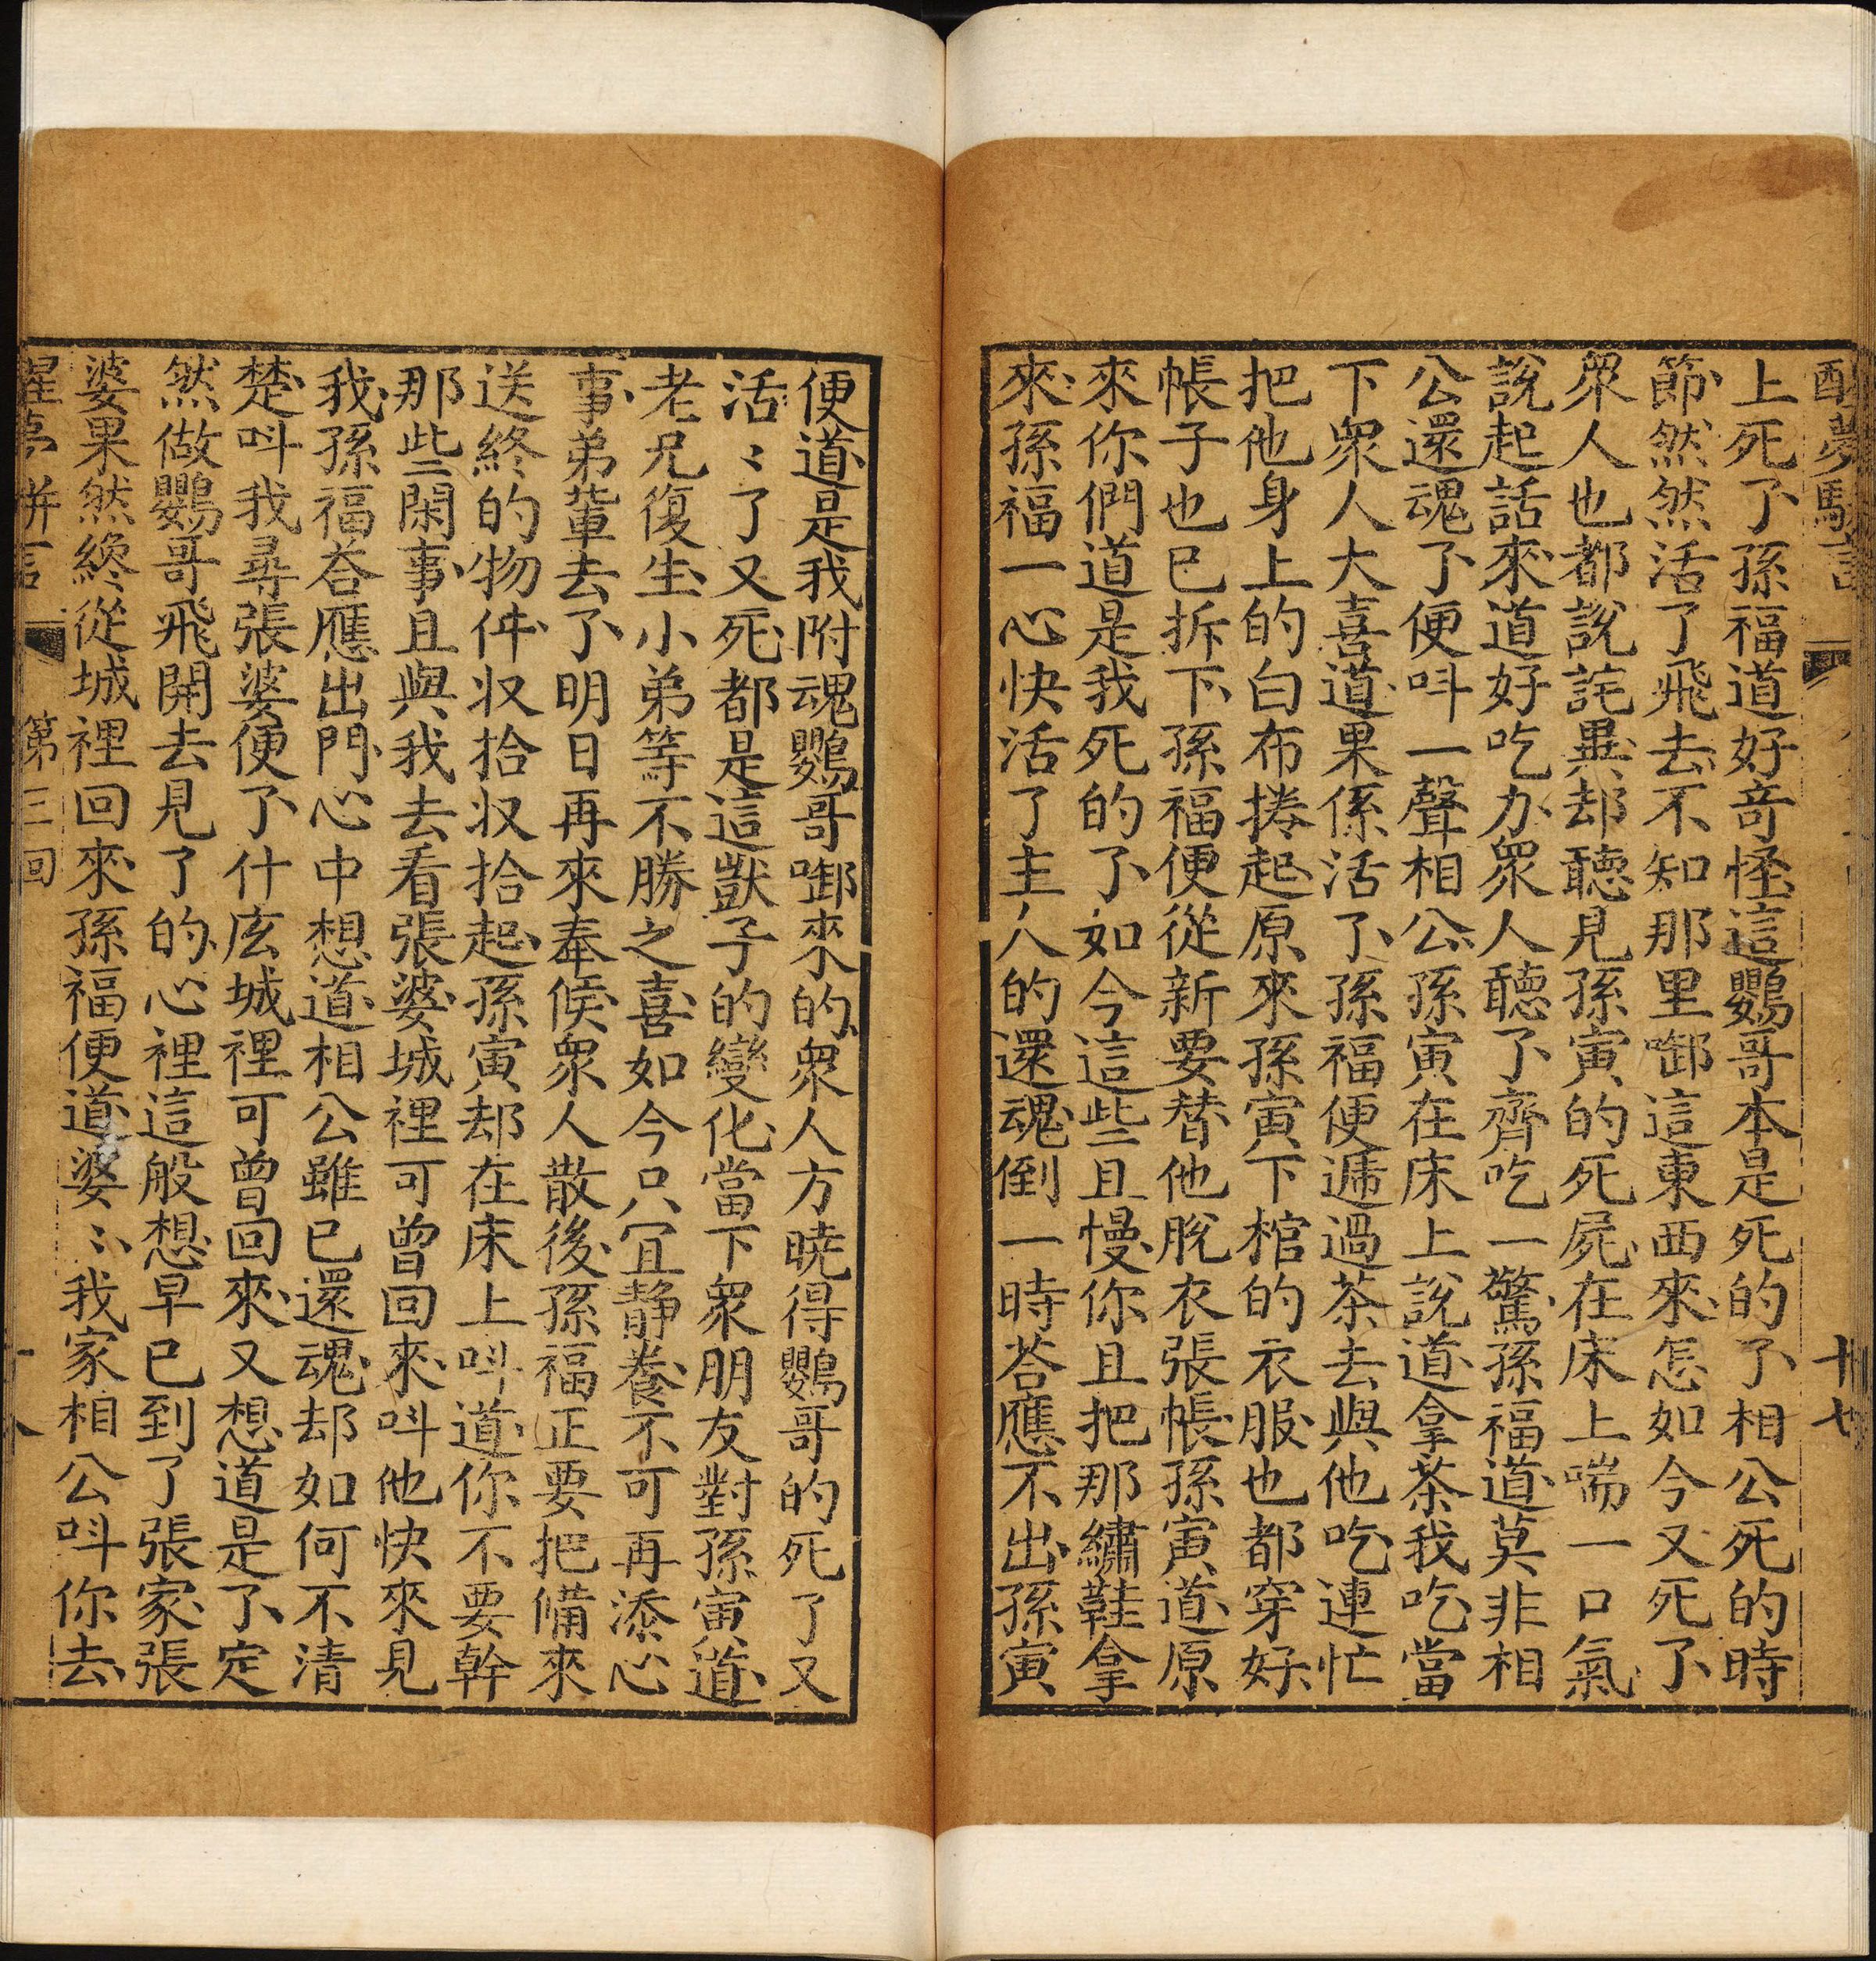 醒夢駢言
十七
上死了孫福道好竒怪這鸚哥本是死的了相公死的時
節然然活了飛去不知那里啣這東西來怎如今又死了
衆人也都說詫異却聽見孫寅的死屍在床上喘一口氣
說起話來道好吃力衆人聽了齊吃一驚孫福道莫非相
公還魂了便呌一聲相公孫寅在床上說道拿茶我吃當
下衆人大喜道果係活了孫福便遞過茶去與他吃連忙
把他身上的白布捲起原來孫寅下棺的衣服也都穿好
帳子也已拆下孫福便從新要替他脫衣張帳孫寅道原
來你們道是我死的了如今這些且慢你且把那繡鞋拿
來孫福一心快活了主人的還魂倒一時荅應不出孫寅
便道是我附魂鸚哥啣來的衆人方曉得鸚哥的死了又
活〻了又死都是這獃子的變化當下衆朋友對孫寅道
老兄復生小弟等不勝之喜如今只宜靜養不可再添心
事弟輩去了明日再來奉候衆人散後孫福正要把備來
送終的物件収拾収拾起孫寅却在床上呌道你不要幹
那些閑事且與我去看張婆城裡可曾回來呌他快來見
我孫福荅應出門心中想道相公雖已還魂却如何不清
楚呌我尋張婆便了什庅城裡可曾回來又想道是了定
然做鸚哥飛開去見了的心裡這般想早已到了張家張
婆果然纔從城裡回來孫福便道婆〻我家相公呌你去
醒夢駢言
第三回
十八